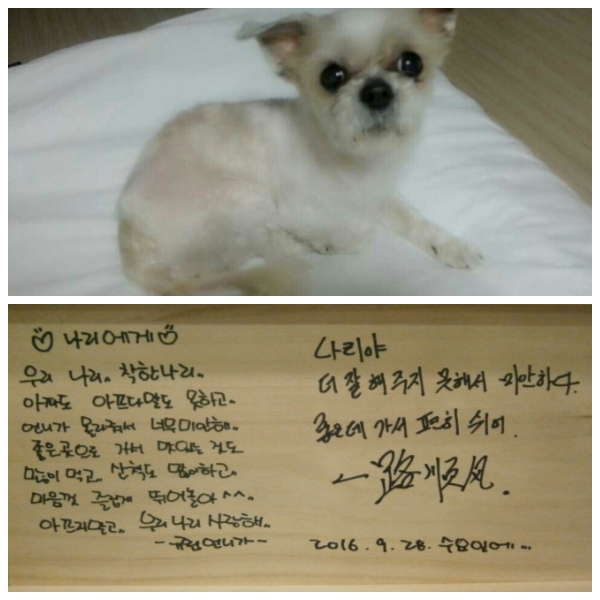 나리에게
우리 나리. 착한나리.
아파도 아프다말도 못하고.
언니가 몰라줘서 너무미안해.
좋은곳으로 가서 맛있는 것도
많이 먹고. 산책도 많이하고.
마음껏 즐겁게 뛰어놀아^^.
아프지말고. 우리나리 사랑해.
언니가-
나리야
더 잘 해 주지 못해서 미안하다.
좋은데 가서 편히 쉬어.
一路順风.
2016. 9. 28. 수요일에...